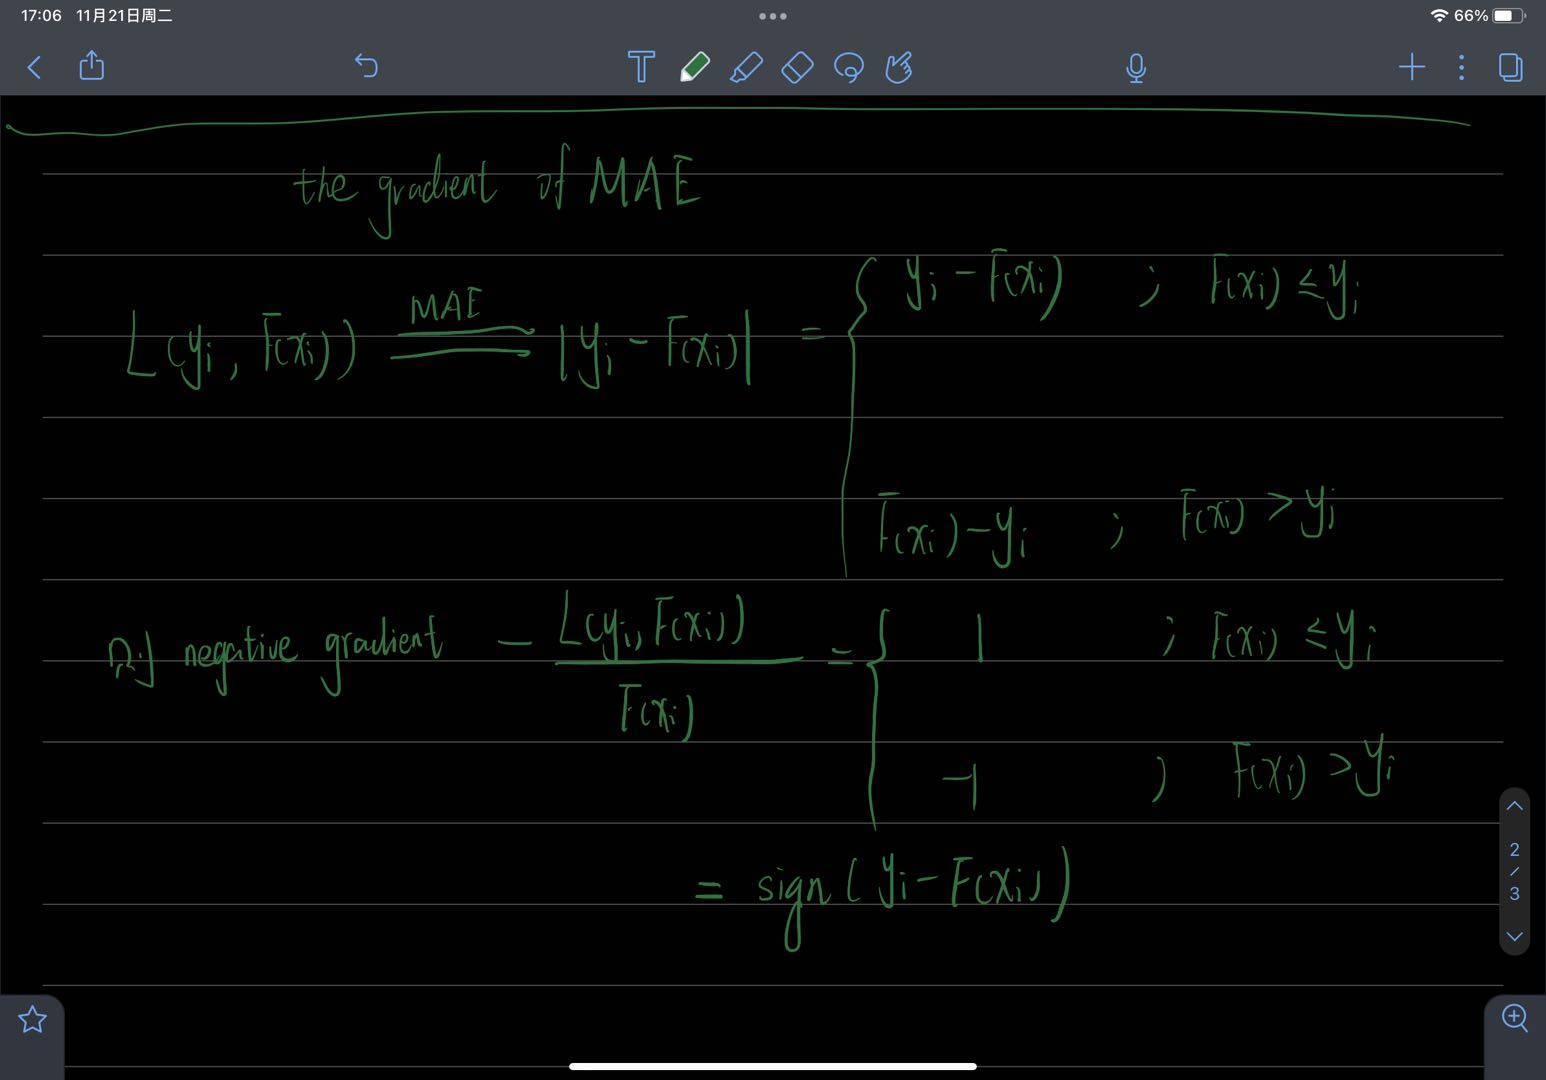 17:06 11月21日周二 66%
the gradient of MAE
L(yi, F(xi)) MAE == |yi - F(xi)| = { yi - F(xi) ; F(xi) ≤ yi
F(xi) - yi ; F(xi) > yi
则 negative gradient - L(yi, F(xi)) / F(xi) = { 1 ; F(xi) ≤ yi
-1 ; F(xi) > yi
= sign(yi - F(xi))
2/3